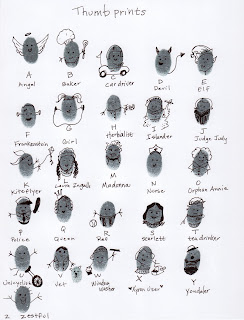 Thumb prints
A B C D E
Angel Baker Car driver Devil Elf
F G H I J
Frankenstein Girl Herbalist Islander Judge Judy
K L M N O
Kite flyer Laura Ingalls Madonna Nurse Orphan Annie
P Q R S T
Police Queen Rat Scarlett tea drinker
U V W X Y
Unicyclist Vet Window Washer Xerox User Yodeler
Z Zestful